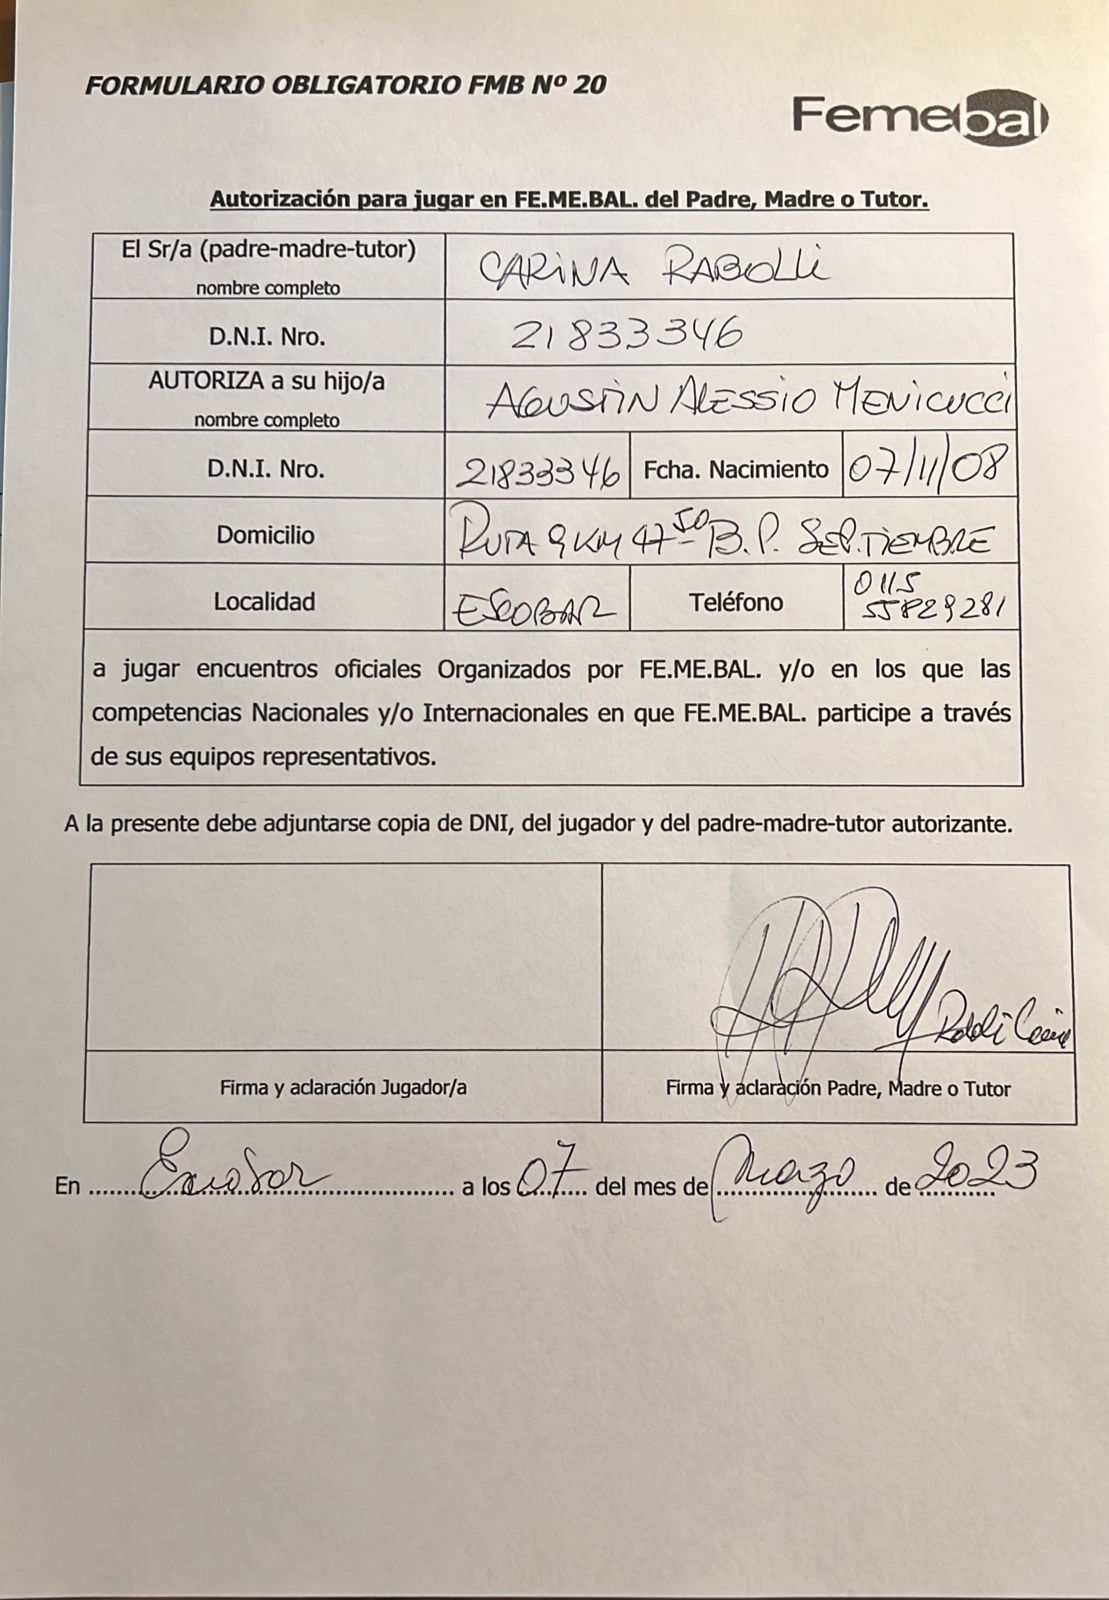 FORMULARIO OBLIGATORIO FMB Nº 20
Femebal
Autorización para jugar en FE.ME.BAL. del Padre, Madre o Tutor.
El Sr/a (padre-madre-tutor) CARINA RABOLLI
nombre completo
D.N.I. Nro. 21833346
AUTORIZA a su hijo/a AGUSTIN ALESSIO MENICUCCI
nombre completo
D.N.I. Nro. 21833346 Fcha. Nacimiento 07/11/08
Domicilio RUTA 9 KM 47 50 B.P. SEP.TIEMBRE
Localidad ESCOBAR Teléfono 0115
55829281
a jugar encuentros oficiales Organizados por FE.ME.BAL. y/o en los que las
competencias Nacionales y/o Internacionales en que FE.ME.BAL. participe a través
de sus equipos representativos.
A la presente debe adjuntarse copia de DNI, del jugador y del padre-madre-tutor autorizante.
Firma y aclaración Jugador/a Firma y aclaración Padre, Madre o Tutor
En Escobar a los 07 del mes de Marzo de 2023